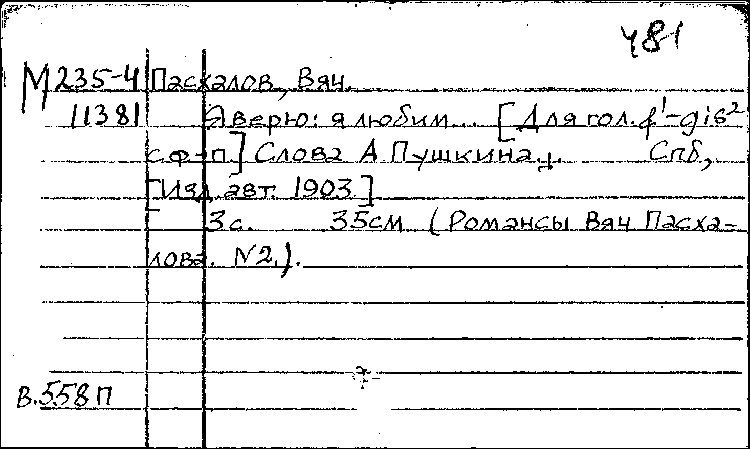 481
М 235-4 Пасхалов, Вяч.
11381 Я верю: я любим... [Для гол. f¹-gis²
с ф-п.] Слова А Пушкина.
Спб,
[Изд. авт. 1903]
3с. 35см (Романсы Вяч Пасха-
лова. N2.).
В.558П